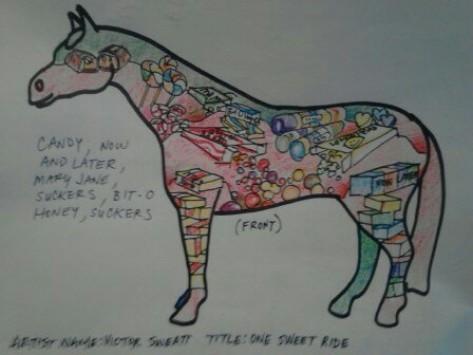 CANDY, NOW
AND LATER,
MARY JANE,
SUCKERS, BIT-O
HONEY, SUCKERS
(FRONT)
ARTIST NAME: VICTOR SWEATT TITLE: ONE SWEET RIDE